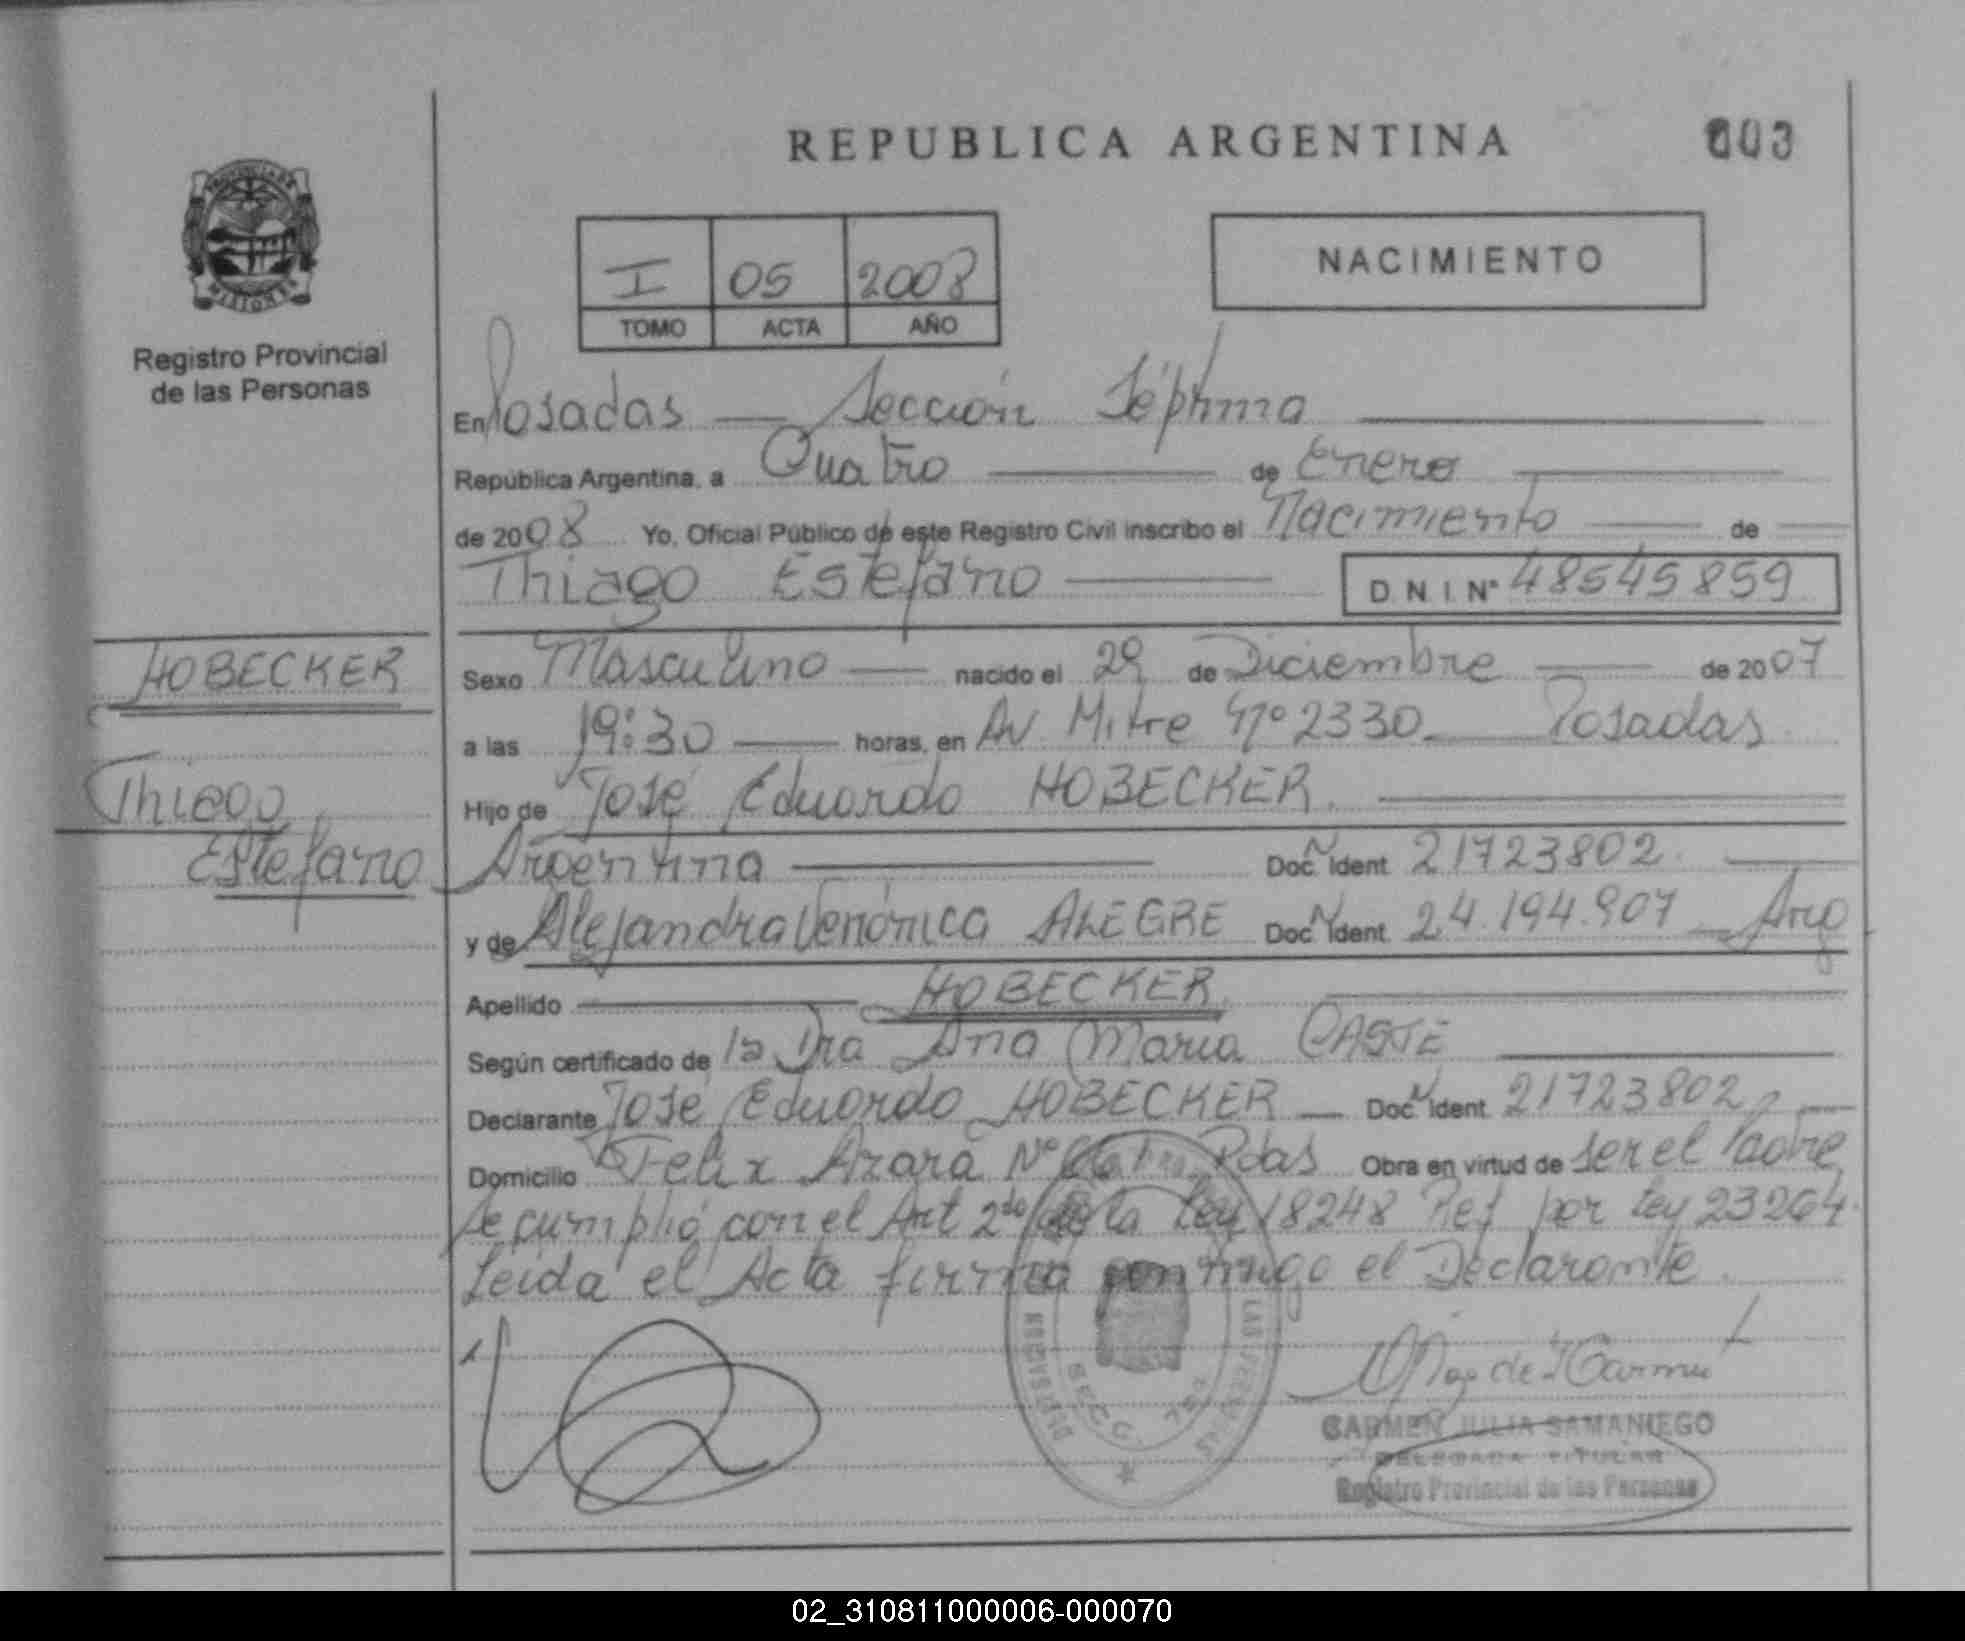 REPUBLICA ARGENTINA
003
PROVINCIA DE
MISIONES
Registro Provincial
de las Personas
I 05 2008
TOMO ACTA AÑO
NACIMIENTO
En Posadas — Sección Séptima
República Argentina, a Cuatro de Enero
de 2008 Yo, Oficial Público de este Registro Civil inscribo el Nacimiento de
Thiago Estefano D.N.I. N° 48545859
HOBECKER
Thiago
Estefano
Sexo Masculino nacido el 29 de Diciembre de 2007
a las 19:30 horas, en Av. Mitre Nº 2330 Posadas
Hijo de José Eduardo HOBECKER.
Argentina Doc. N Ident 21723802.
y de Alejandra Verónica ALEGRE Doc. N Ident 24.194.907 Arg
Apellido HOBECKER
Según certificado de la Dra Ana María CASTE
Declarante José Eduardo HOBECKER Doc N Ident 21723802
Domicilio Felix Azara Nº Pdas Obra en virtud de ser el Padre
Se cumplió con el Art 2do de la Ley 18248 Ref por Ley 23264.
Leída el Acta firma conmigo el Declarante.
LAS PERSONAS
CARMEN JULIA SAMANIEGO
DELEGADA TITULAR
Registro Provincial de las Personas
02_310811000006-000070